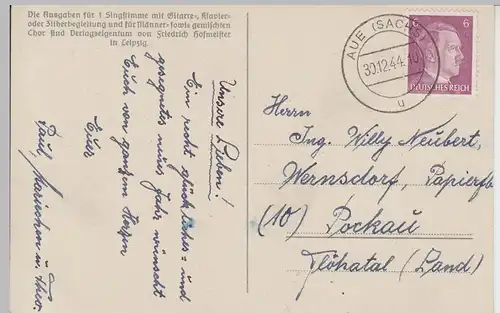 Die Ausgaben für 1 Singstimme mit Gitarre-, Klavier-
oder Zitherbegleitung und für Männer- sowie gemischten
Chor sind Verlagseigentum von Friedrich Hofmeister
in Leipzig.
Unsere Lieben!
Ein recht glückliches - und
gesegnetes neues Jahr, wünscht
Euch von ganzem Herzen
Euer
Paul, Mariechen u.
AUE (SACHS)
30.12.44.
u
6
DEUTSCHES REICH
Herrn
Ing. Willy Neubert,
Wernsdorf, Papierfb
(10) Pockau
Flöhatal (Land)